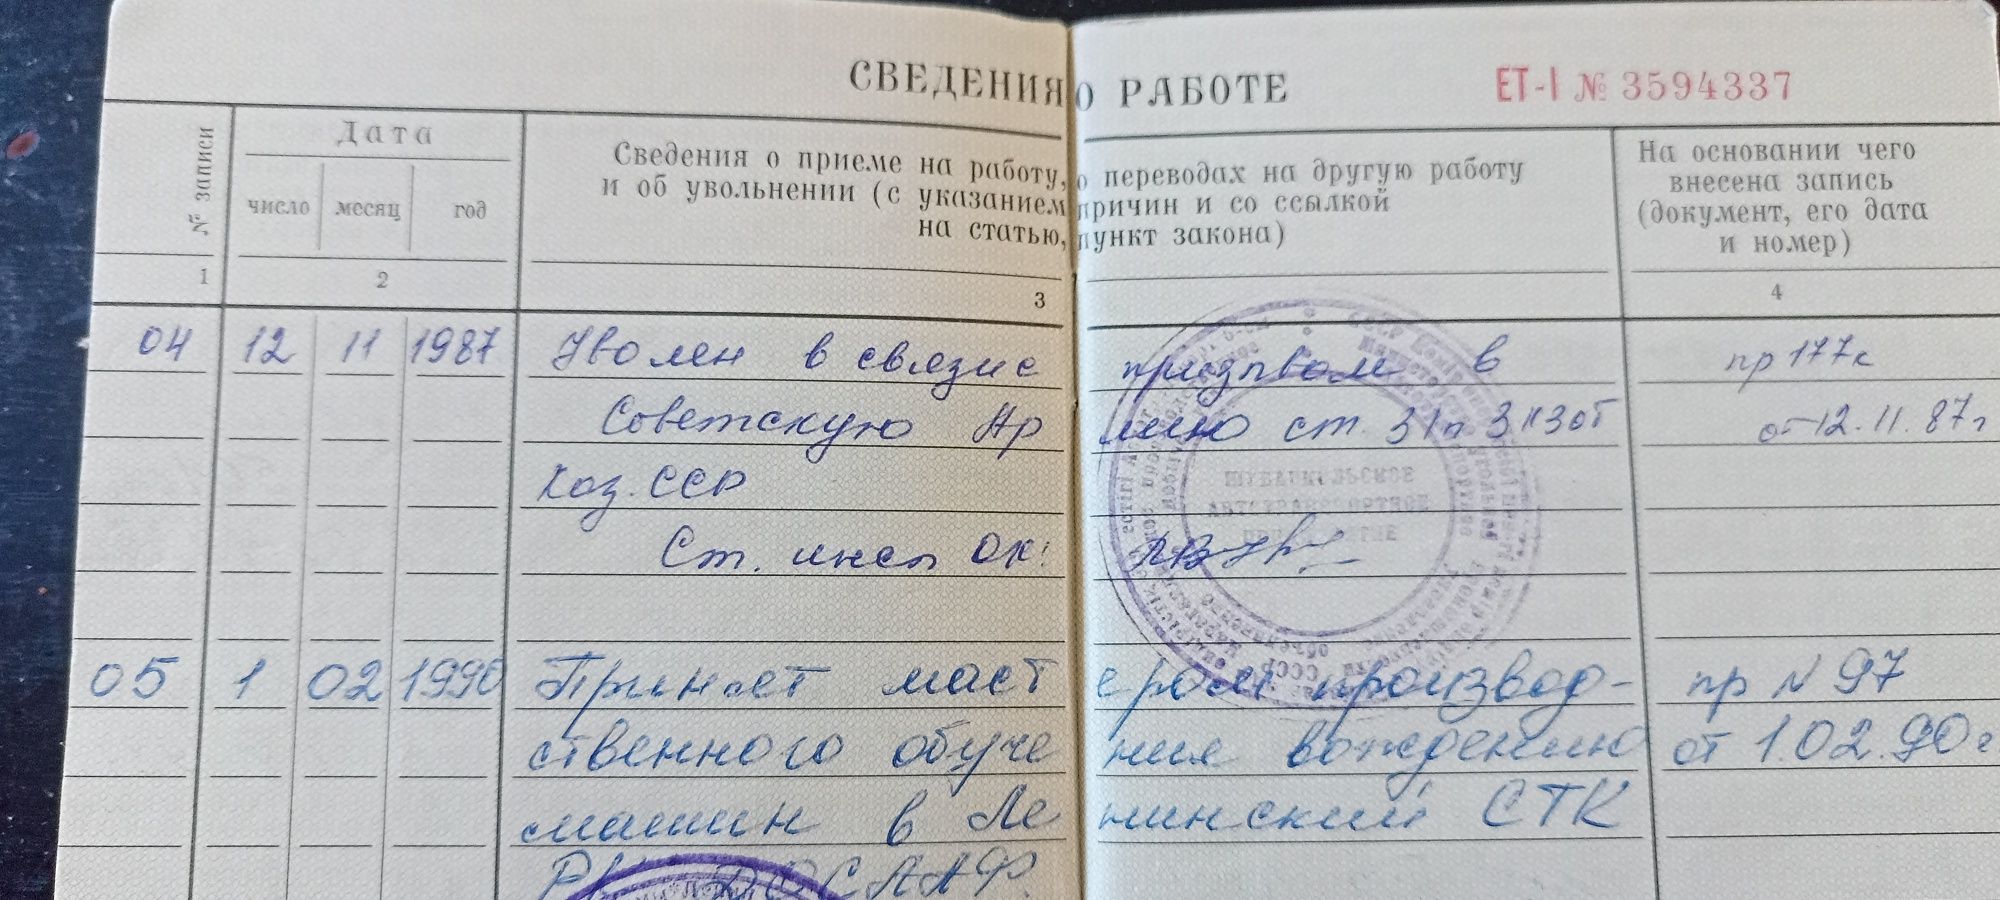 СВЕДЕНИЯ О РАБОТЕ ЕТ-I № 3594337
№ записи
Дата
число месяц год
Сведения о приеме на работу, о переводах на другую работу
и об увольнении (с указанием причин и со ссылкой
на статью, пункт закона)
На основании чего
внесена запись
(документ, его дата
и номер)
1 2 3 4
04 12 11 1987 Уволен в связи с призывом в пр 177к
Советскую Армию ст. 31 п 3 КЗОТ от 12.11.87г
Каз. ССР
Ст. инсп ОК
ШУБАРКУЛЬСКОЕ
АВТОТРАНСПОРТНОЕ
ПРЕДПРИЯТИЕ
05 1 02 1990 Принят мастером производ- пр N 97
ственного обучения вождению от 1.02.90г
машин в Ленинский СТК
ДОСААФ